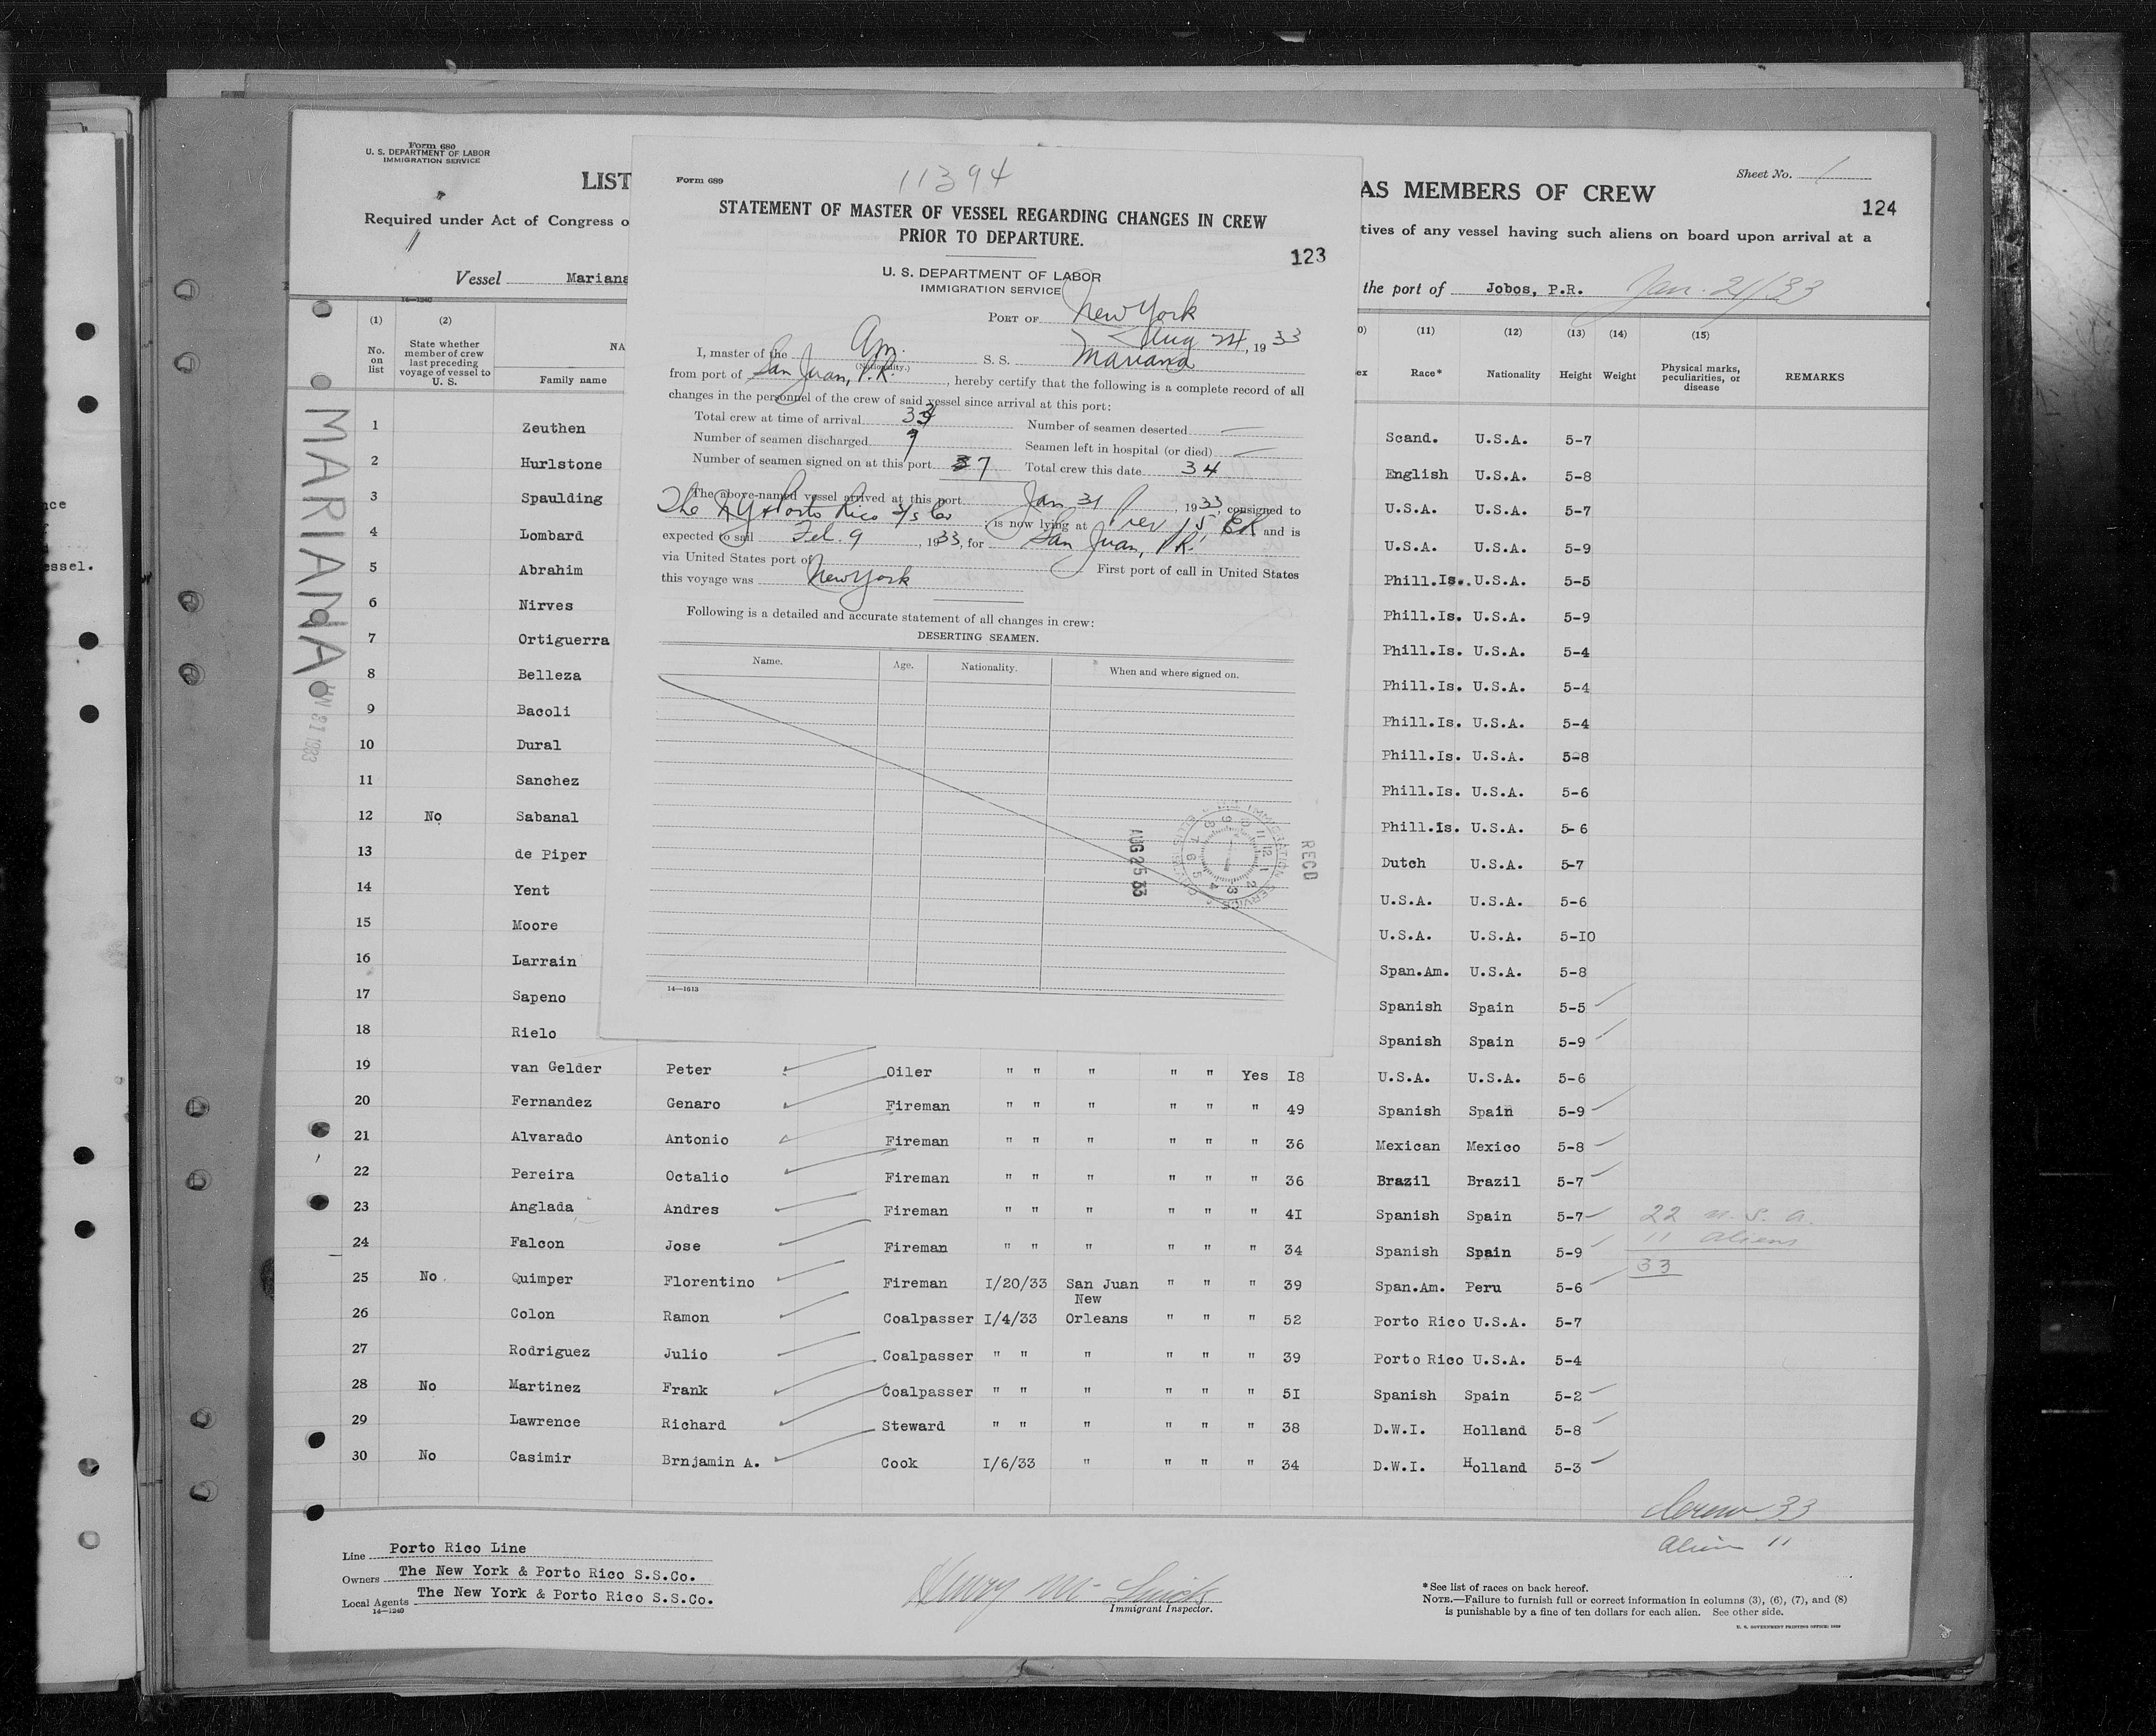 Form 680
U. S. DEPARTMENT OF LABOR
IMMIGRATION SERVICE
LIST
Required under Act of Congress o
Vessel Mariana
14—1240
AS MEMBERS OF CREW
Sheet No. 1
124
tives of any vessel having such aliens on board upon arrival at a
the port of Jobos, P.R. Jan. 21/33
11394
Form 689
STATEMENT OF MASTER OF VESSEL REGARDING CHANGES IN CREW
PRIOR TO DEPARTURE.
123
U. S. DEPARTMENT OF LABOR
IMMIGRATION SERVICE
PORT OF New York
Aug 24, 1933
I, master of the Am. S. S. Mariana
(Nationality.)
from port of San Juan, P.R., hereby certify that the following is a complete record of all
changes in the personnel of the crew of said vessel since arrival at this port:
Total crew at time of arrival Number of seamen deserted —
Number of seamen discharged Seamen left in hospital (or died) —
Number of seamen signed on at this port 7 Total crew this date 34
The above-named vessel arrived at this port Jan 31, 1933, consigned to
The N.Y. & Porto Rico S/S Co is now lying at Pier 15, ER and is
expected to sail Feb. 9, 1933, for San Juan, P.R.
via United States port of First port of call in United States
this voyage was New York
Following is a detailed and accurate statement of all changes in crew:
DESERTING SEAMEN.
Name. Age. Nationality. When and where signed on.
AUG 25 33
RECD
14—1613
MARIANA
JAN 31 1933
(1) (2) (11) (12) (13) (14) (15)
No. on list
State whether member of crew last preceding voyage of vessel to U. S.
NA
Family name
ex Race* Nationality Height Weight Physical marks, peculiarities, or disease REMARKS
1 Zeuthen Scand. U.S.A. 5-7
2 Hurlstone English U.S.A. 5-8
3 Spaulding U.S.A. U.S.A. 5-7
4 Lombard U.S.A. U.S.A. 5-9
5 Abrahim Phill.Is. U.S.A. 5-5
6 Nirves Phill.Is. U.S.A. 5-9
7 Ortiguerra Phill.Is. U.S.A. 5-4
8 Belleza Phill.Is. U.S.A. 5-4
9 Bacoli Phill.Is. U.S.A. 5-4
10 Dural Phill.Is. U.S.A. 5-8
11 Sanchez Phill.Is. U.S.A. 5-6
12 No Sabanal Phill.Is. U.S.A. 5-6
13 de Piper Dutch U.S.A. 5-7
14 Yent U.S.A. U.S.A. 5-6
15 Moore U.S.A. U.S.A. 5-10
16 Larrain Span.Am. U.S.A. 5-8
17 Sapeno Spanish Spain 5-5
18 Rielo Spanish Spain 5-9
19 van Gelder Peter Oiler " " " " " Yes 18 U.S.A. U.S.A. 5-6
20 Fernandez Genaro Fireman " " " " " " 49 Spanish Spain 5-9
21 Alvarado Antonio Fireman " " " " " " 36 Mexican Mexico 5-8
22 Pereira Octalio Fireman " " " " " " 36 Brazil Brazil 5-7
23 Anglada Andres Fireman " " " " " " 41 Spanish Spain 5-7 22 U.S.A.
24 Falcon Jose Fireman " " " " " " 34 Spanish Spain 5-9 11 aliens
25 No. Quimper Florentino Fireman 1/20/33 San Juan " " " 39 Span.Am. Peru 5-6 33
26 Colon Ramon Coalpasser 1/4/33 New Orleans " " " 52 Porto Rico U.S.A. 5-7
27 Rodriguez Julio Coalpasser " " " " " " 39 Porto Rico U.S.A. 5-4
28 No Martinez Frank Coalpasser " " " " " " 51 Spanish Spain 5-2
29 Lawrence Richard Steward " " " " " " 38 D.W.I. Holland 5-8
30 No Casimir Brnjamin A. Cook 1/6/33 " " " " 34 D.W.I. Holland 5-3
Crew 33
Alien 11
Line Porto Rico Line
Owners The New York & Porto Rico S.S.Co.
Local Agents The New York & Porto Rico S.S.Co.
14—1240
Immigrant Inspector.
*See list of races on back hereof.
NOTE.—Failure to furnish full or correct information in columns (3), (6), (7), and (8)
is punishable by a fine of ten dollars for each alien. See other side.
nce
essel.